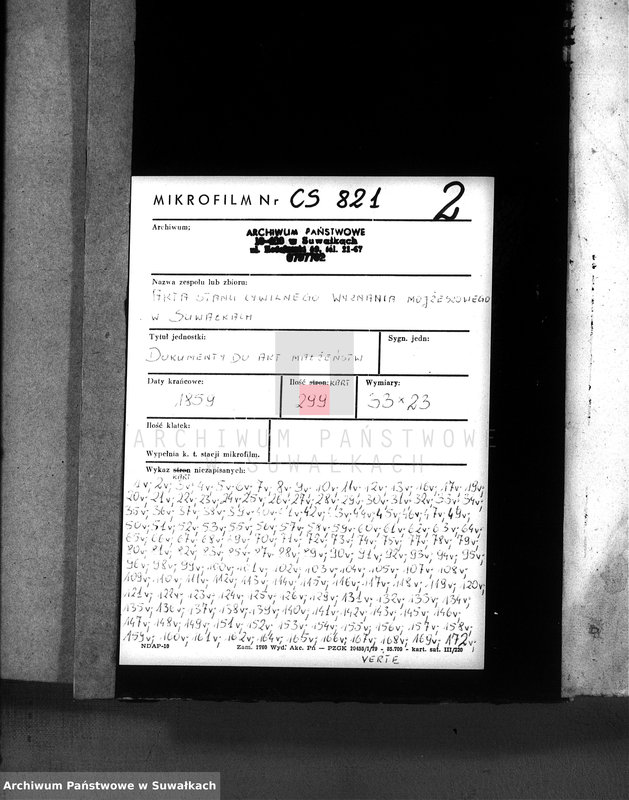 MIKROFILM Nr CS 821 2
Archiwum;
ARCHIWUM PAŃSTWOWE
w Suwałkach
tel. 21-67
Nazwa zespołu lub zbioru:
AKTA STANU CYWILNEGO WYZNANIA MOJŻESZOWEGO
W SUWAŁKACH
Tytuł jednostki:
Sygn. jedn:
DOKUMENTY DO AKT MAŁŻEŃSTW
Daty krańcowe:
Ilość stron: KART
Wymiary:
1859
299
33 × 23
Ilość klatek:
ARCHIWUM PAŃSTWOWE
SUWAŁKACH
Wypełnia k. t. stacji mikrofilm.
Wykaz stron niezapisanych:
KART
1v; 2v; 3v; 4v; 5v; 6v; 7v; 8v; 9v; 10v; 11v; 12v; 13v; 16v; 17v; 19v;
20v; 21v; 22v; 23v; 24v; 25v; 26v; 27v; 28v; 29v; 30v; 31v; 32v; 33v; 34v;
35v; 36v; 37v; 38v; 39v; 42v; 44v; 45v; 46v; 47v; 49v;
50v; 51v; 52v; 53v; 55v; 56v; 57v; 58v; 59v; 60v; 61v; 62v; 63v; 64v;
65v; 66v; 67v; 68v; 69v; 70v; 71v; 72v; 73v; 74v; 75v; 77v; 78v; 79v;
80v; 81v; 82v; 83v; 85v; 87v; 88v; 89v; 90v; 91v; 92v; 93v; 94v; 95v;
96v; 98v; 99v; 100v; 101v; 102v; 103v; 104v; 105v; 107v; 108v;
109v; 110v; 111v; 112v; 113v; 114v; 115v; 116v; 117v; 118v; 119v; 120v;
121v; 122v; 123v; 124v; 125v; 126v; 129v; 131v; 132v; 133v; 134v;
135v; 136v; 137v; 138v; 139v; 140v; 141v; 142v; 143v; 145v; 146v;
147v; 148v; 149v; 151v; 152v; 153v; 154v; 155v; 156v; 157v; 158v;
159v; 160v; 161v; 162v; 164v; 165v; 166v; 167v; 168v; 169v; 172v;
NDAP-10
Zam. 1260 Wyd. Akc. Pń — PZGK 20458/1/79 - 85.700 - kart. sat. III/220
VERTE
Archiwum Państwowe w Suwałkach